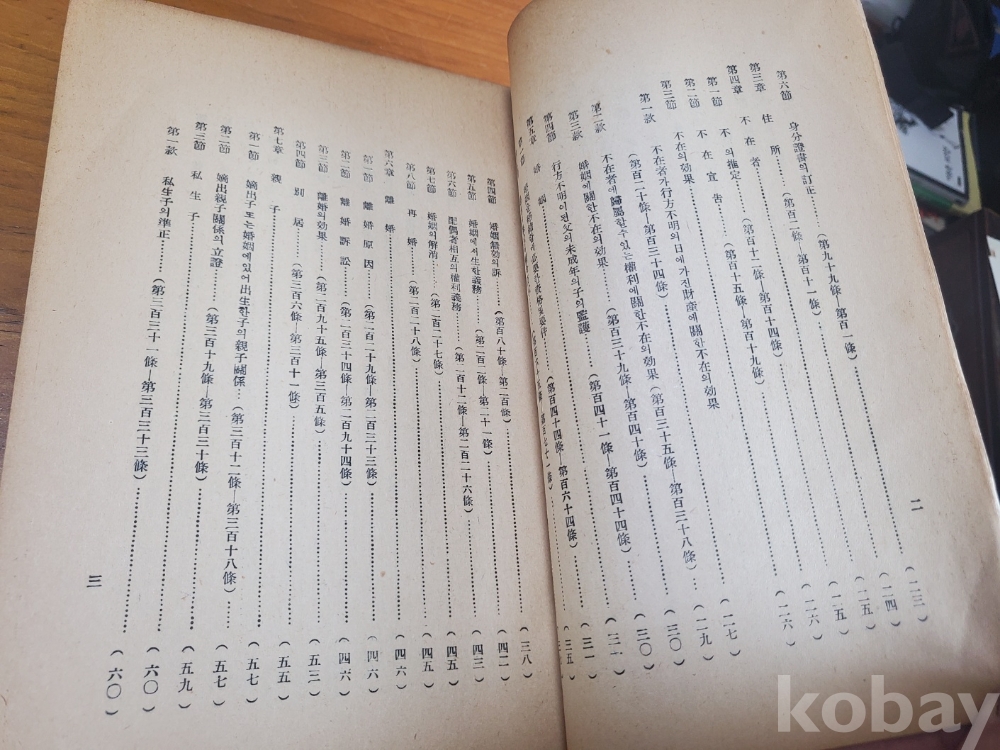 第六節 身分證書의訂正 (第九十九條—第百一條) (二三)
第三章 住所 (第百二條—第百十一條) (二四)
第四章 不在者 (二五)
第一節 不在의推定 (第百十二條—第百十四條) (二五)
第二節 不在宣告 (第百十五條—第百十九條) (二六)
第三節 不在의効果 (二六)
第一款 不在者가行方不明의日에가진財産에關한不在의効果 (二七)
(第百二十條—第百三十四條) (二九)
第二款 不在者에歸屬할수있는權利에關한不在의効果 (第百三十五條—第百三十八條) (三〇)
第三款 婚姻에關한不在의効果 (第百三十九條—第百四十條) (三〇)
第四節 行方不明이된父의未成年의子의監護 (第百四十一條—第百四十四條) (三一)
第五章 婚姻 (三一)
(第百四十四條—第百六十四條)
二
第四節 婚姻無効의訴 (第百八十條—第二百條) (三八)
第五節 婚姻에서生한義務 (第二百二條—第二十一條) (四二)
第六節 配偶者相互의權利義務 (第二百十二條—第二百二十六條) (四三)
第七節 婚姻의解消 (第二百二十七條) (四五)
第八節 再婚 (第二百二十八條) (四五)
第六章 離婚 (四六)
第一節 離婚原因 (第二百二十九條—第二百三十三條) (四六)
第二節 離婚訴訟 (第二百三十四條—第二百九十四條) (四六)
第三節 離婚의効果 (第二百九十五條—第三百五條) (五三)
第四節 別居 (第三百六條—第三百十一條) (五五)
第七章 親子 (五七)
第一節 嫡出子또는婚姻에있어出生한子의親子關係 (第三百十二條—第三百十八條) (五七)
第二節 嫡出親子關係의立證 (第三百十九條—第三百三十條) (五九)
第三節 私生子 (六〇)
第一款 私生子의準正 (第三百三十一條—第三百三十三條) (六〇)
三
kobay